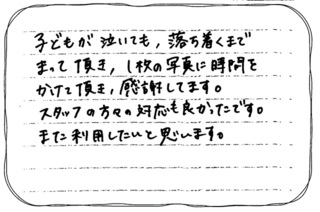 子どもが泣いても，落ち着くまで
まって頂き，1枚の写真に時間を
かけて頂き，感謝してます。
スタッフの方々の対応も良かったです。
また利用したいと思います。